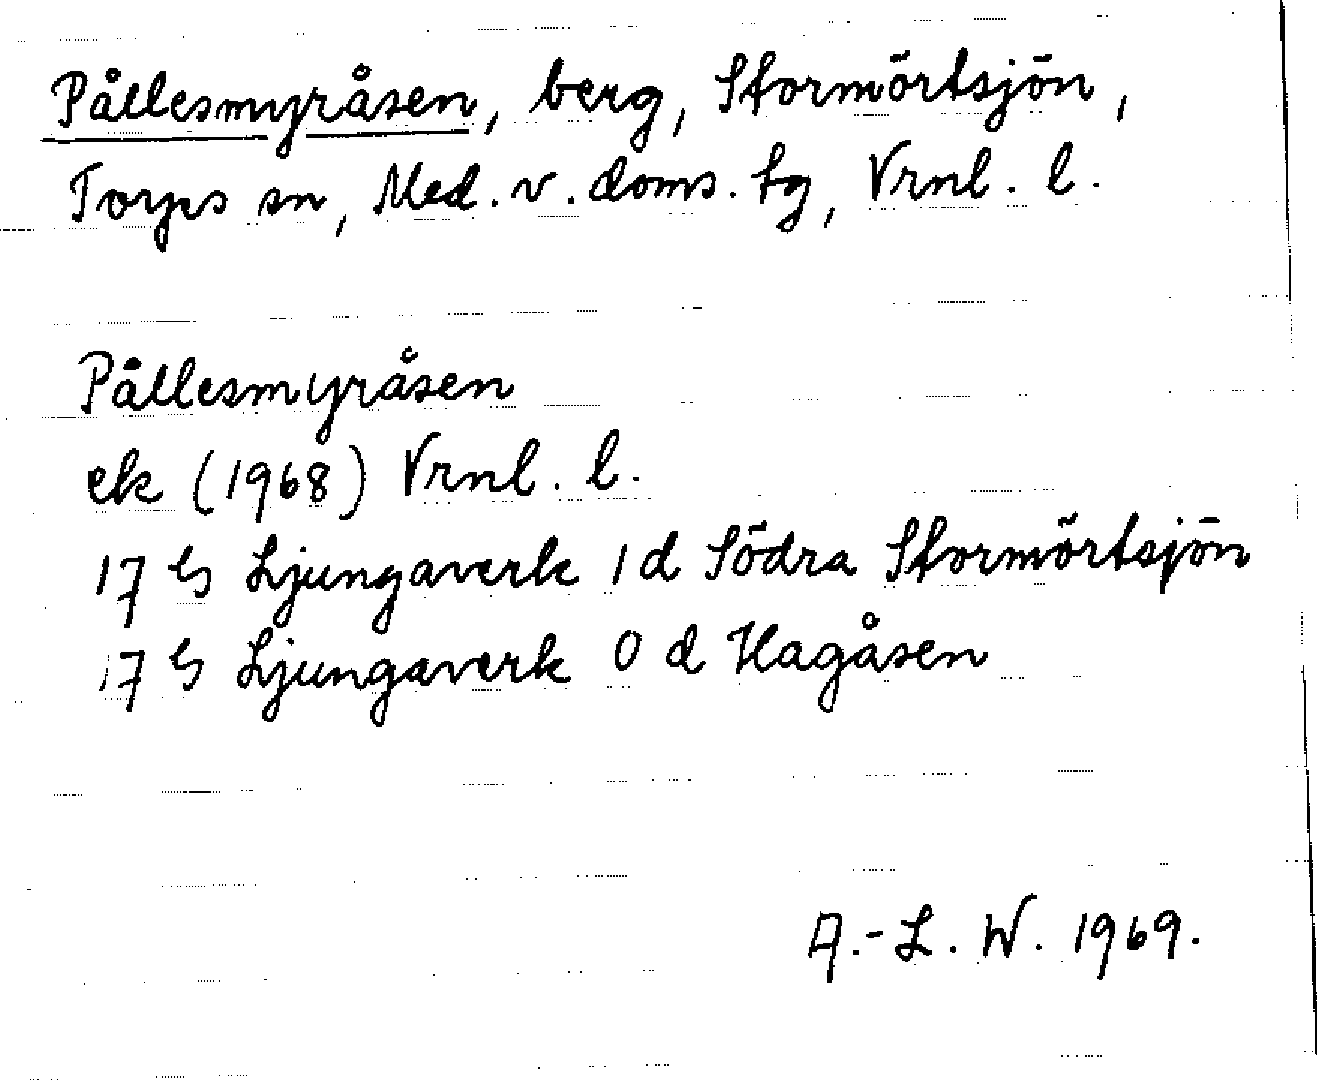 Pållesmyråsen, berg, Stormörtsjön,
Torps sn, Med. v. doms. tg, Vrnl. l.
Pållesmyråsen
ek (1968) Vrnl. l.
17 G Ljungaverk 1 d Södra Stormörtsjön
17 G Ljungaverk 0 d Hagåsen
A.-L. W. 1969.